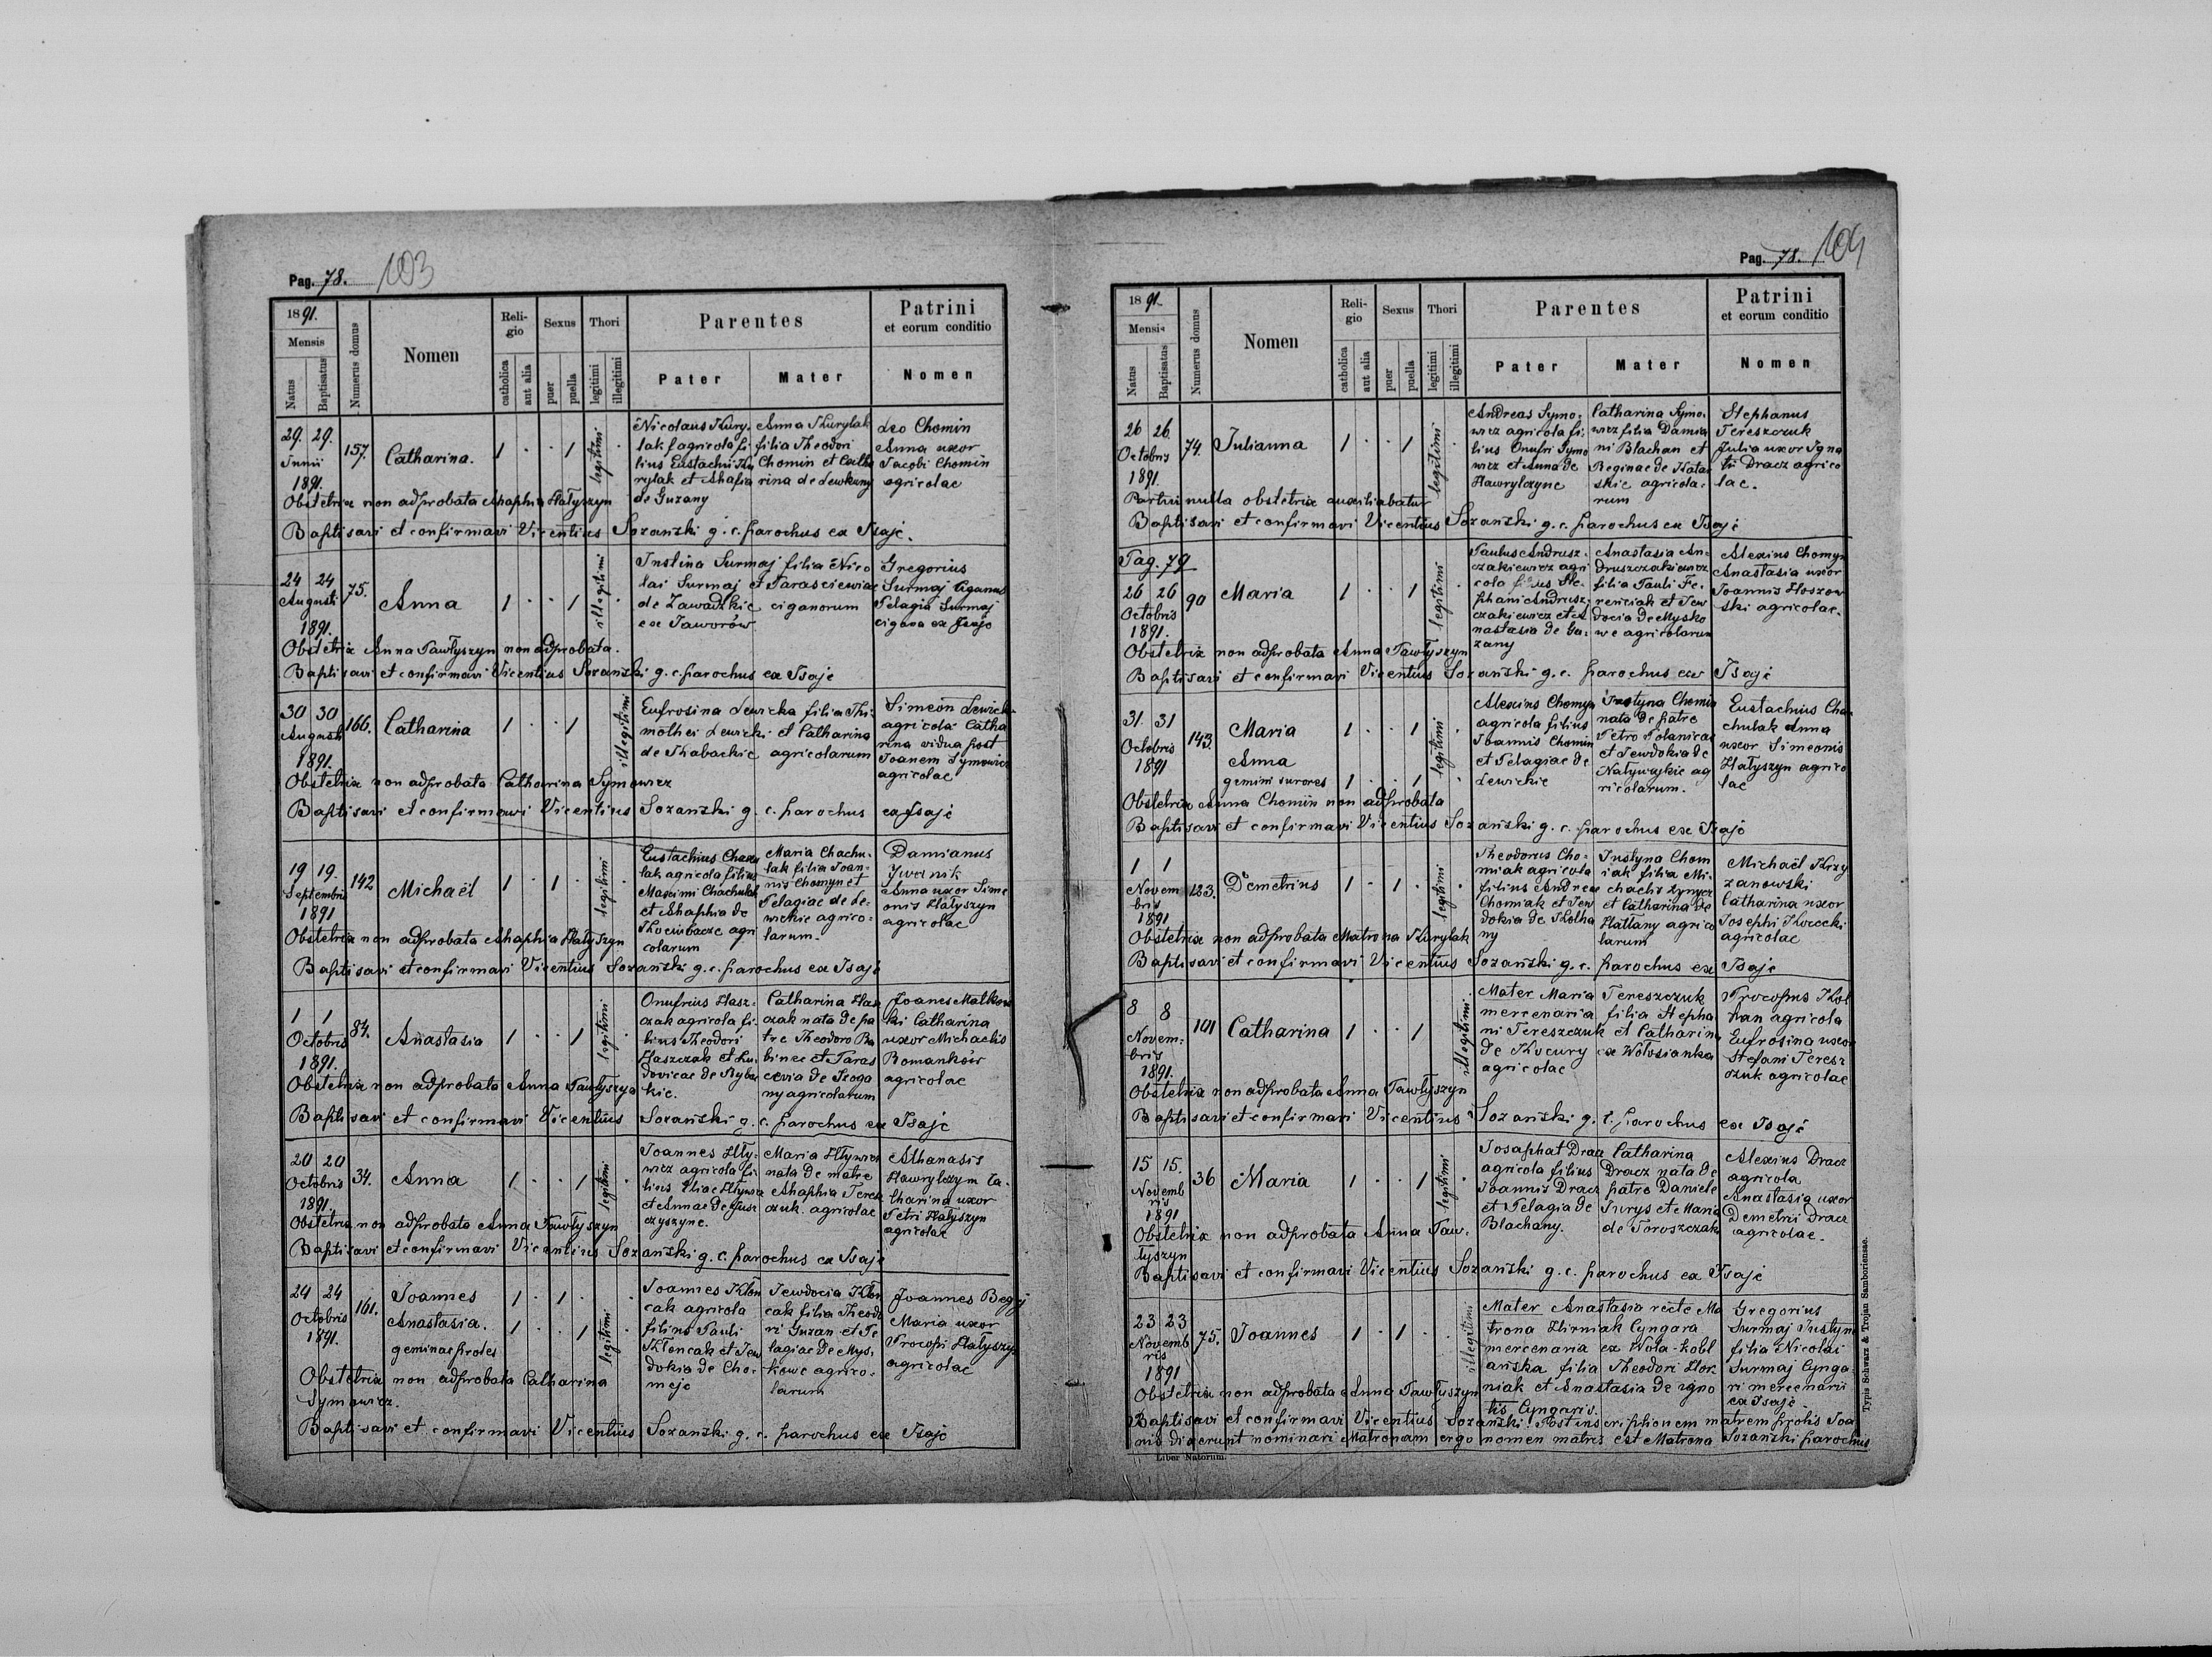 Pag. 78. 103
1891.
Mensis
Natus
Baptisatus
Numerus domus
Nomen
Reli-
gio
catholica
aut alia
Sexus
puer
puella
Thori
legitimi
illegitimi
Parentes
Pater
Mater
Patrini
et eorum conditio
Nomen
29. 29.
Junii
1891.
157.
Catharina.
1 · · 1
legitimi
Nicolaus Kury-
lak agricola fi-
lius Eustachii Ku
rylak et Ahafia
de Guzany
Anna Kurylak
filia Theodori
Chomin et Catha
rina de Lewkuny
Leo Chomin
Anna uxor
Jacobi Chomin
agricolae
Obstetrix non adprobata Ahaphia Hałyszyn
Baptisavi et confirmavi Vicentius Sozański g. c. parochus ex Isaje.
24 24
Augusti
1891.
75.
Anna
1 · · 1
illegitimi
Justina Surmaj filia Nico
lai Surmaj et Parasciewiae
de Zawadzkie ciganorum
ex Jaworów
Gregorius
Surmaj Ciganus
Pelagia Surmaj
cigana ex Isaje
Obstetrix Anna Pawłyszyn non adprobata.
Baptisavi et confirmavi Vicentius Sozański g. c. parochus ex Isaje
30 30
Augusti
1891.
166.
Catharina
1 · · 1
illegitimi
Eufrosina Lewicka filia Thi
mothei Lewicki et Catharina
de Chabackie agricolarum
Simeon Lewicki
agricola Catha
rina vidua post
Joanem Symowicz
agricolae
Obstetrix non adprobata Catharina Symowicz
Baptisavi et confirmavi Vicentius Sozański g. c. parochus ex Isaje
19 19.
Septembris
1891
142
Michaël
1 · 1 ·
legitimi
Eustachius Chachu
lak agricola filius
Maximi Chachulak
et Ahaphia de
agri
colarum
Maria Chachu-
lak filia Joan-
nis Chomyn et
Pelagiae de Le-
wickie agrico-
larum.
Damianus
Anna uxor Sime
onis Hałyszyn
agricolae
Obstetrix non adprobata Ahaphia Hałyszyn
Baptisavi et confirmavi Vicentius Sozański g. c. parochus ex Isaje
1 1
Octobris
1891.
84.
Anastasia
1 · · 1
legitimi
Onufrius Hasz-
czak agricola fi-
lius Theodori
Haszczak et Lu-
dovicae de Ryba
kie.
Catharina Hasz
czak nata de pa
tre Theodoro Ba
biniec et Paras
cevia de Roga
ny agricolarum
Joanes Małkow
ki Catharina
uxor Michaelis
Romanków
agricolae
Obstetrix non adprobata Anna Pawłyszyn
Baptisavi et confirmavi Vicentius Sozański g. c. parochus ex Isaje
20 20
Octobris
1891.
34.
Anna
1 · · 1
legitimi
Joannes Hły-
wicz agricola fi
lius Eliae Hływicz
et Annae de Husz
czyszyne.
Maria Hływicz
nata de matre
Ahaphia Teresz
czuk. agricolae
Athanasis
Hawrylczyn Ca-
tharina uxor
Petri Hałyszyn
agricolae
Obstetrix non adprobata Anna Pawłyszyn
Baptisavi et confirmavi Vicentius Sozański g. c. parochus ex Isaje
24 24
Octobris
1891.
161.
Joannes
Anastasia.
geminae proles
1 · 1 ·
1 · · 1
legitimi
Joannes Kłon
cak agricola
filius Pauli
Kłoncak et Jew
dokia de Cho-
meje
Jewdocia Kłon
cak filia Theodo
ri Guzan et Pe
lagiae de Mys-
kowe agrico-
larum
Joannes Begej
Maria uxor
Procopi Hałyszyn
agricolae
Obstetrix non adprobata Catharina
Symowicz.
Baptisavi et confirmavi Vicentius Sozański g. c. parochus ex Isaje
Pag. 78. 104
1891.
Mensis
Natus
Baptisatus
Numerus domus
Nomen
Reli-
gio
catholica
aut alia
Sexus
puer
puella
Thori
legitimi
illegitimi
Parentes
Pater
Mater
Patrini
et eorum conditio
Nomen
26 26.
Octobris
1891.
74.
Julianna
1 · · 1
legitimi
Andreas Symo-
wicz agricola fi-
lius Onufri Symo
wicz et Anna de
Hawrylczyne
Catharina Symo-
wicz filia Damia
ni Blachan et
Reginae de Kata
skie agricola-
rum
Stephanus
Tereszczuk
Julia uxor Igna
tii Dracz agrico
lae.
Partui nulla obstetrix auxiliabatur
Baptisavi et confirmavi Vicentius Sozański g. c. parochus ex Isaje
Pag. 79
26 26
Octobris
1891.
90
Maria
1 · · 1
legitimi
Paulus Andrusz-
czakiewicz agri
cola filius Ste-
phani Andrusz-
czakiewicz et A
nastasia de Gu-
zany
Anastasia An-
druszczakiewicz
filia Pauli Fe-
renciak et Jew
docia de Mysko
we agricolarum
Alexius Chomyn
Anastasia uxor
Joannis Hoszow
ski agricolae.
Obstetrix non adprobata Anna Pawłyszyn
Baptisavi et confirmavi Vicentius Sozański g. c. parochus ex Isaje
31. 31
Octobris
1891
143.
Maria
Anna
gemini surores
1 · · 1
1 · · 1
legitimi
Alexius Chomyn
agricola filius
Joannis Chomin
et Pelagiae de
Lewickie
Justyna Chomin
nata de patre
Petro Polanicas
et Jewdokia de
Natywczykie ag
ricolarum.
Eustachius Cha-
chulak Anna
uxor Simeonis
Hałyszyn agrico
lae
Obstetrix Anna Chomin non adprobata
Baptisavi et confirmavi Vicentius Sozański g. c. parochus ex Isaje
1 1
Novem
bris
1891
123.
Demetrius
1 · 1 ·
legitimi
Theodorus Cho-
miak agricola
filius Andreae
Chomiak et Jew
dokia de Kolha
ny
Justyna Chom
iak filia Mi-
chaelis Zynycz
et Catharina de
Hałłany agrico
larum
Michaël Krzy
zanowski
Catharina uxor
Josephi Kocecki
agricolae
Obstetrix non adprobata Matrona Kurylak
Baptisavi et confirmavi Vicentius Sozański g. c. parochus ex Isaje
8 8
Novem-
bris
1891.
101
Catharina
1 · · 1
illegitimi
Mater Maria Tereszczuk
mercenaria filia Stepha
ni Tereszczuk et Catharina
de Kocury ex Wołosianka
agricolae
Procopius Kol
han agricola
Eufrosina uxor
Stefani Teresz
czuk agricolae
Obstetrix non adprobata Anna Pawłyszyn
Baptisavi et confirmavi Vicentius Sozański g. c. parochus ex Isaje
15 15.
Novemb
ris
1891
36
Maria
1 · · 1
legitimi
Josaphat Dracz
agricola filius
Joannis Dracz
et Pelagia de
Blachany.
Catharina
Dracz nata de
patre Daniele
Jurys et Maria
de Toroszczak
Alexius Dracz
agricola
Anastasia uxor
Demetrii Dracz
agricolae.
Obstetrix non adprobata Anna Paw-
łyszyn
Baptisavi et confirmavi Vicentius Sozański g. c. parochus ex Isaje
23 23
Novemb
ris
1891
75.
Joannes
1 · 1 · ·
illegitimi
Mater Anastasia recte Ma
trona Hirniak Cyngara
mercenaria ex Wola-kobl
ańska filia Theodori Hor
niak et Anastasia de igno
tis Cyngaris.
Gregorius
Surmaj Justyna
filia Nicolai
Surmaj Cynga-
ri mercenarii
ex Isaje.
Obstetrix non adprobata Anna Pawłyszyn
Baptisavi et confirmavi Vicentius Sozański! Post inscriptionem matrem prolis Joa
nis dixerunt nominari Matronam ergo nomen matris est Matrona Sozański parochus
Liber Natorum.
Typis Schwarz & Trojan Samboriensae.